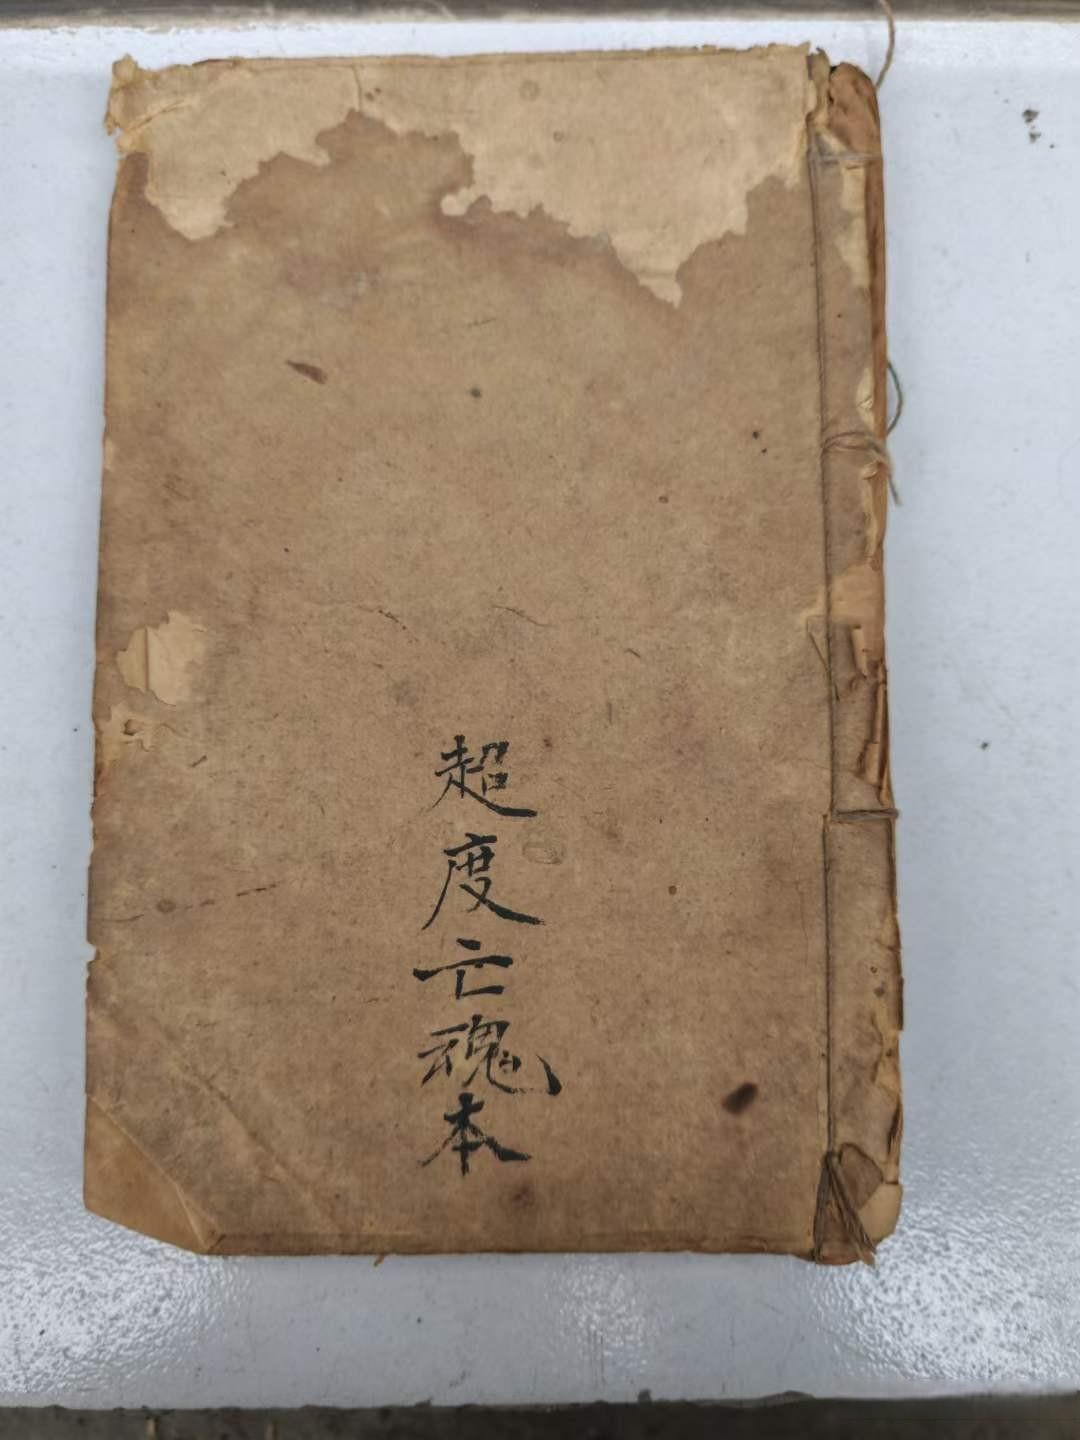 超度亡魂本